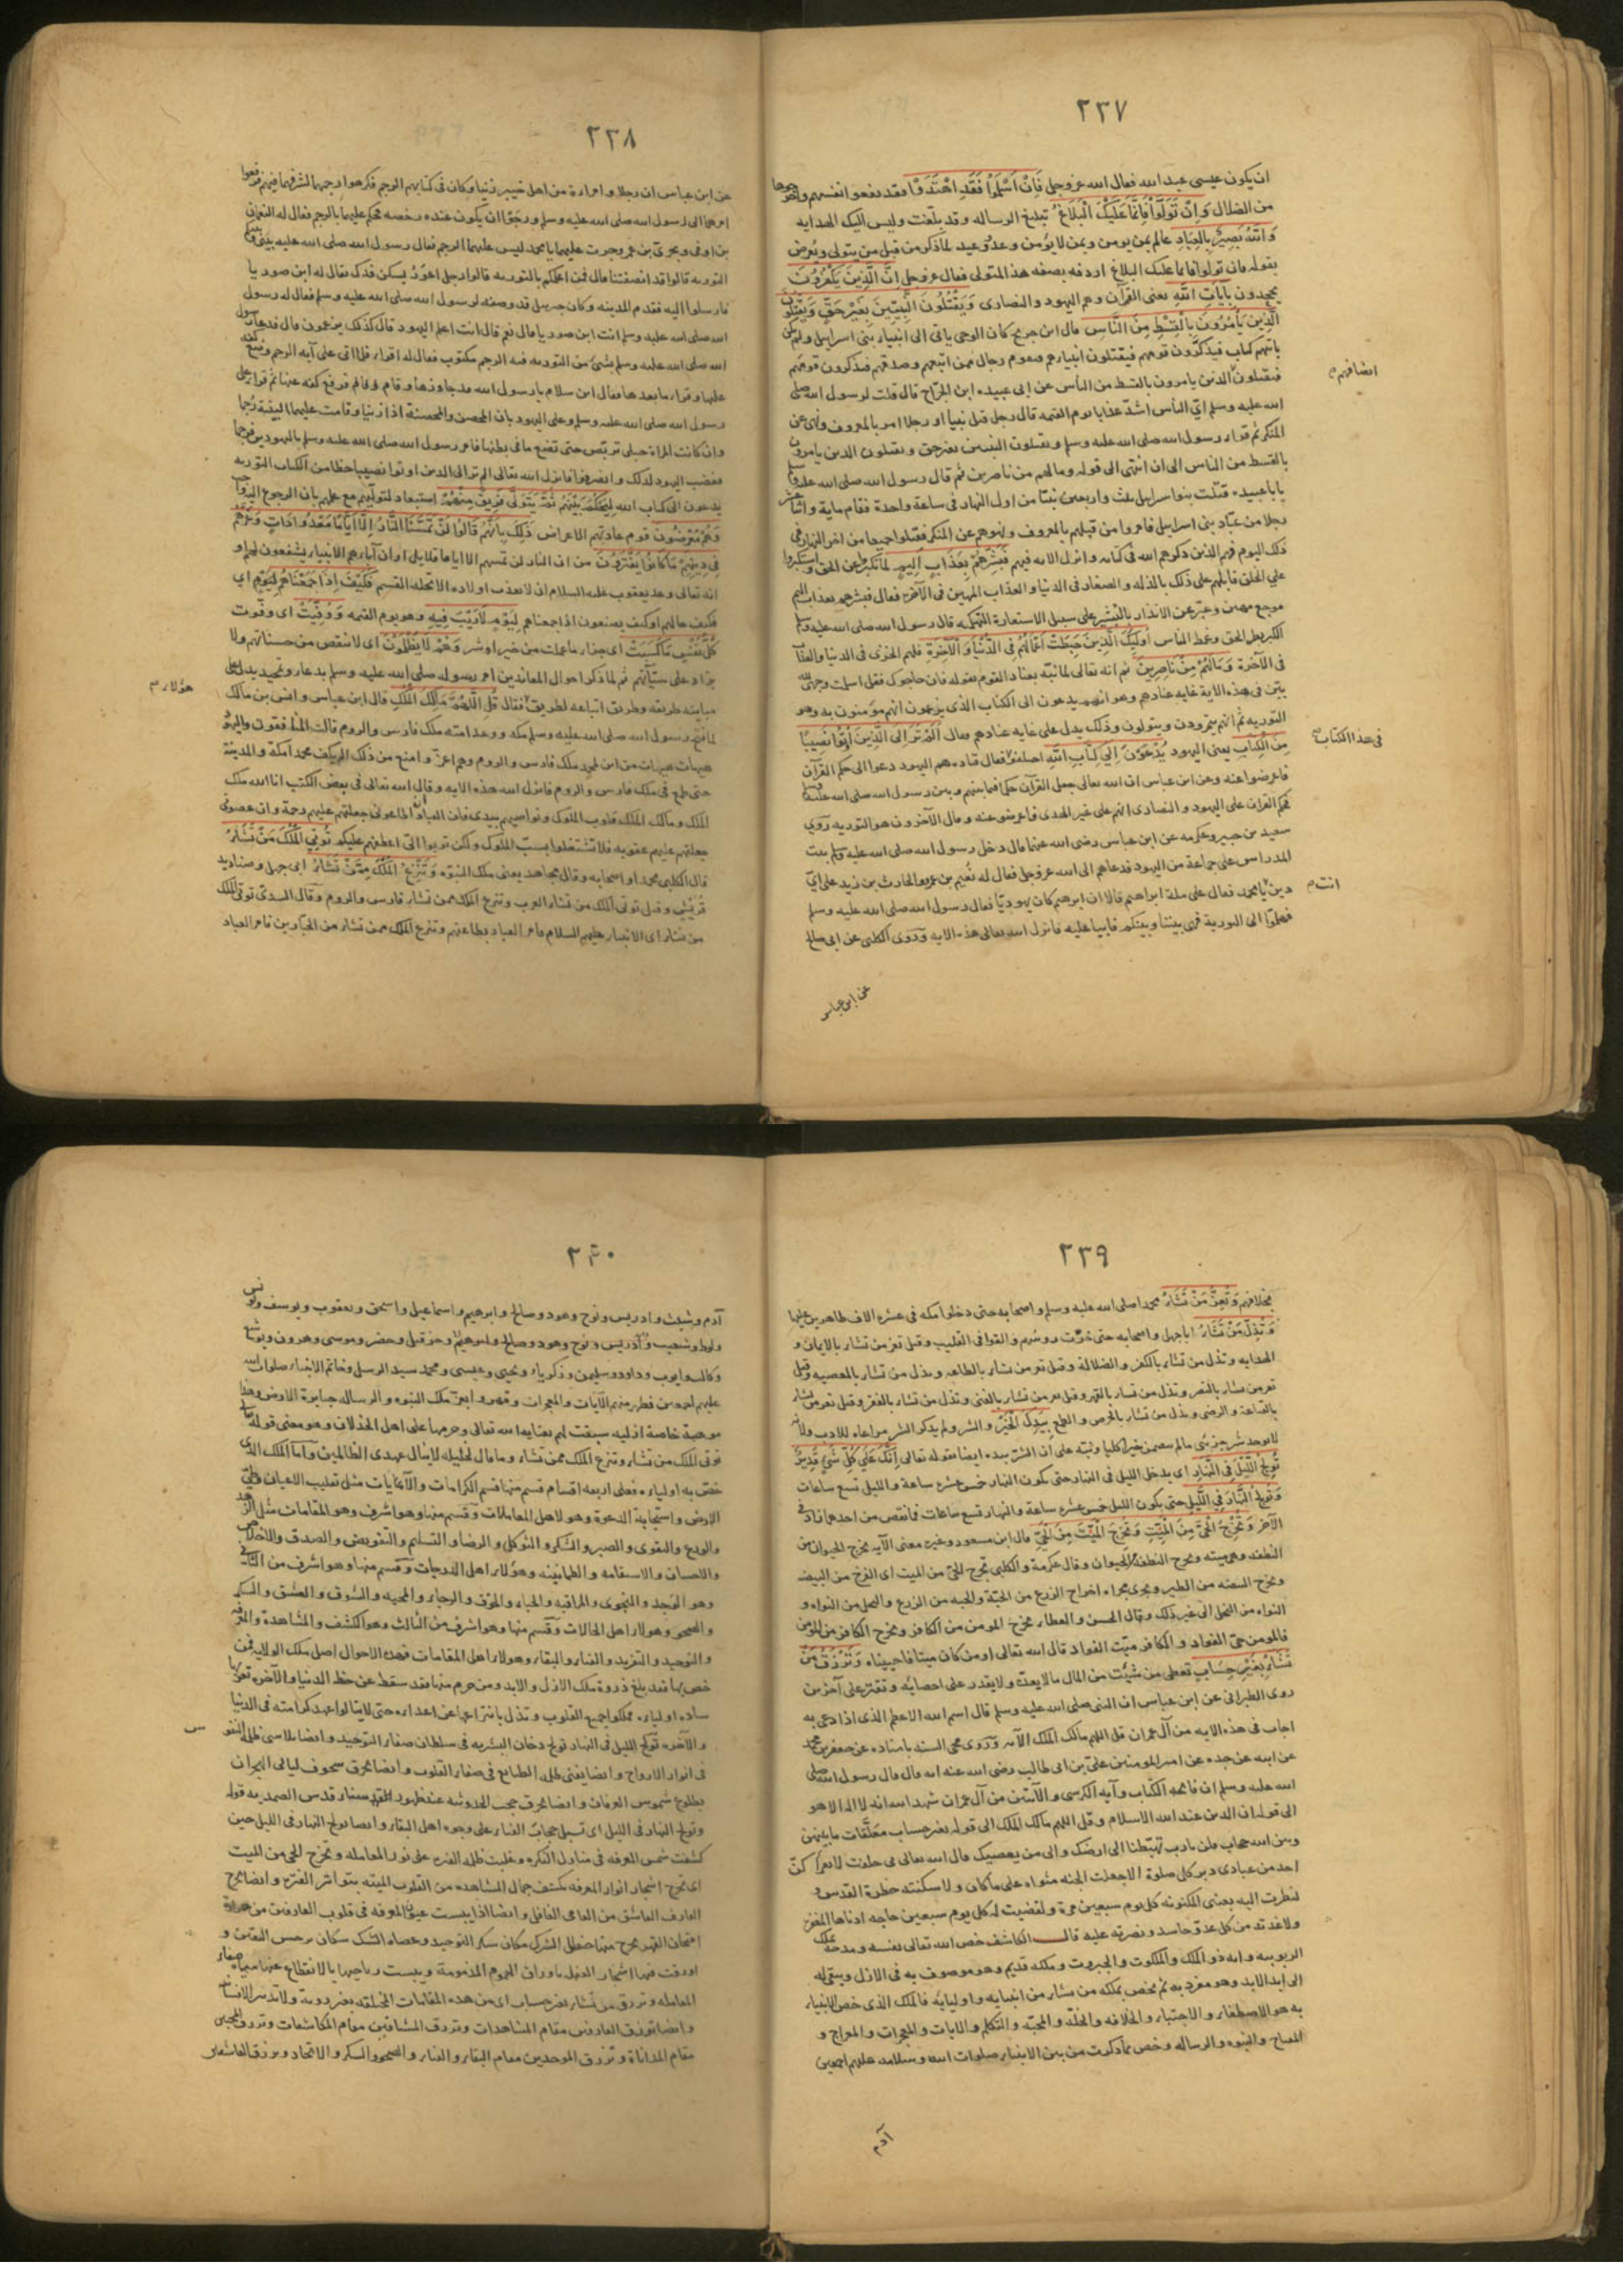 ٢٣٧
ان يكون عيسى عبد الله فقال الله عز وجل فَاِنْ اَسْلَمُوا فَقَدِ اهْتَدَوْا فقد نفعوا انفسهم
من الضلال وَاِنْ تَوَلَّوْا فَاِنَّمَا عَلَيْكَ الْبَلَاغُ تبليغ الرساله وقد بلغت وليس اليك الهدايه
وَاللّٰهُ بَصِيرٌ بِالْعِبَادِ عالم بمن يومن وبمن لا يؤمن وعد ووعيد لماذكر من قبل من يتولى ويعرض
بقوله فان تولوا فانما عليك البلاغ اردفه بصفه هذا المتولى فقال عز وجل اِنَّ الَّذِينَ يَكْفُرُونَ
يجحدون بِاٰيَاتِ اللّٰهِ يعنى القرآن وهم اليهود والنصارى وَيَقْتُلُونَ النَّبِيِّينَ بِغَيْرِ حَقٍّ وَيَقْتُلُونَ
الَّذِينَ يَأْمُرُونَ بِالْقِسْطِ مِنَ النَّاسِ قال ابن جريج كان الوحى ياتى الى انبياء بنى اسرائيل ولم يكن
ياتيهم كتاب فيذكرون قومهم فيقتلون انبياءهم فيقوم رجال ممن اتبعهم وصدقهم فيذكرون قومهم
فيقتلون الذين يامرون بالقسط من الناس عن ابى عبيده ابن الجراح قال قلت لرسول الله صلى
الله عليه وسلم اىّ الناس اشدّ عذابا يوم القيمه قال رجل قتل نبيا او رجلا امر بالمعروف ونهى عن
المنكر ثم قراء رسول الله صلى الله عليه وسلم ويقتلون النبيين بغير حق ويقتلون الذين يامرون
بالقسط من الناس الى ان انتهى الى قوله وما لهم من ناصرين ثم قال رسول الله صلى الله عليه وسلم
يا با عبيده قتلت بنوا اسرائيل ثلث واربعين نبيّا من اول النهار فى ساعة واحدة فقام ماية واثنا عشر
رجلا من عبّاد بنى اسرائيل فامروا من قتلهم بالمعروف ونهوهم عن المنكر فقتلوا جميعا من آخر النهار فى
ذلك اليوم فهم الذين ذكرهم الله فى كتابه وانزل الايه فيهم فَبَشِّرْهُمْ بِعَذَابٍ اَلِيمٍ لما تكبروا عن الحق واستكبروا
على الخلق قابلهم على ذلك بالذله والصغار فى الدنيا والعذاب المهين فى الآخرة فقال فبشرهم بعذاب اليم
موجع مهين وعبّر عن الانذار بالتبشير على سبيل الاستعارة التهكميه قال رسول الله صلى الله عليه وسلم
الكبر بطر الحق وغمط الناس اُولٰئِكَ الَّذِينَ حَبِطَتْ اَعْمَالُهُمْ فِي الدُّنْيَا وَالْآخِرَةِ فلهم الخزى فى الدنيا والعذاب
فى الآخرة وَمَا لَهُمْ مِنْ نَاصِرِينَ ثم انه تعالى لما نبّه بعناد القوم بقوله فان حاجوك فقل اسلمت وجهى لله
بيّن فى هذه الاية غايه عنادهم وهو انهم يدعون الى الكتاب الذى يزعمون انهم مؤمنون به وهو
التوريه ثم انهم يتمردون ويتولون وذلك يدل على غايه عنادهم فقال اَلَمْ تَرَ اِلَى الَّذِينَ اُوتُوا نَصِيبًا
مِنَ الْكِتَابِ يعنى اليهود يُدْعَوْنَ اِلٰى كِتَابِ اللّٰهِ اختلفوا فقال قتاده هم اليهود دعوا الى حكم القرآن
فاعرضوا عنه وعن ابن عباس ان الله تعالى جعل القرآن حكما فيما بينهم وبين رسول الله صلى الله عليه وسلم
فحكم القرآن على اليهود والنصارى انهم على غير الهدى فاعرضوا عنه وقال الآخرون هو التوريه روى
سعيد بن جبير وعكرمه عن ابن عباس رضى الله عنهما قال دخل رسول الله صلى الله عليه وسلم بيت
المدراس على جماعة من اليهود فدعاهم الى الله عز وجل فقال له نعيم بن عمرو والحارث بن زيد على اىّ
دين يا محمد فقال على ملة ابراهيم قالا ان ابرهيم كان يهوديّا فقال رسول الله صلى الله عليه وسلم
فهلمّوا الى التورية فهى بيننا وبينكم فابيا عليه فانزل الله تعالى هذه الايه وروى الكلبى عن ابى صالح
عن ابن عباس
ايضا فهم
فى هذا الكتاب
انت
٢٣٨
عن ابن عباس ان رجلا وامراءة من اهل خيبر زنيا وكان فى كتابهم الرجم فكرهوا رجمهما لشرفهما فيهم فرفعوا
امرهما الى رسول الله صلى الله عليه وسلم ورجوا ان يكون عنده رخصه فحكم عليهما بالرجم فقال له النعمان
بن اوفى وبحرى بن عمر وجرت عليهما يا محمد ليس عليهما الرجم فقال رسول الله صلى الله عليه بينى وبينكم
التوريه قالوا قد انصفتنا قال فمن اعلمكم بالتوريه قالوا رجل اعور يسكن فدك يقال له ابن صوريا
فارسلوا اليه فقدم المدينه وكان جبريل قد وصفه لرسول الله صلى الله عليه وسلم فقال له رسول
الله صلى الله عليه وسلم انت ابن صوريا قال نعم قال انت اعلم اليهود قال كذلك يزعمون قال فدعا رسول
الله صلى الله عليه وسلم بشئ من التوريه فيه الرجم مكتوب فقال له اقراء فلما اتى على آية الرجم وضع كفه
عليها وقراء ما بعدها فقال ابن سلام يا رسول الله قد جاوزها وقام فرفع كفه عنها ثم قراء على
رسول الله صلى الله عليه وسلم وعلى اليهود بان المحصن والمحصنة اذا زنيا وقامت عليهما البينة رجما
وان كانت المراة حبلى تربص حتى تضع ما فى بطنها فامر رسول الله صلى الله عليه وسلم باليهوديين فرجما
فغضب اليهود لذلك وانصرفوا فانزل الله تعالى الم تر الى الذين اوتوا نصيبا حظا من الكتاب التوريه
يدعون الى كتاب الله لِيَحْكُمَ بَيْنَهُمْ ثُمَّ يَتَوَلّٰى فَرِيقٌ مِنْهُمْ استبعاد لتوليهم مع علمهم بان الرجوع اليه واجب
وَهُمْ مُعْرِضُونَ قوم عادتهم الاعراض ذٰلِكَ بِاَنَّهُمْ قَالُوا لَنْ تَمَسَّنَا النَّارُ اِلَّا اَيَّامًا مَعْدُودَاتٍ وَغَرَّهُمْ
فِي دِينِهِمْ مَا كَانُوا يَفْتَرُونَ من ان النار لن تمسهم الا اياما قلايل او ان آباءهم الانبياء يشفعون لهم او
انه تعالى وعد يعقوب عليه السلام ان لا يعذب اولاده الا تحلة القسم فَكَيْفَ اِذَا جَمَعْنَاهُمْ لِيَوْمٍ اى
فكيف حالهم او كيف يصنعون اذا جمعناهم لِيَوْمٍ لَا رَيْبَ فِيهِ وهو يوم القيمه وَوُفِّيَتْ اى وفّرت
كُلُّ نَفْسٍ مَا كَسَبَتْ اى جزاء ما عملت من خير او شر وَهُمْ لَا يُظْلَمُونَ اى لا ينقص من حسناتهم ولا
يزاد على سيّآتهم ثم لما ذكر احوال المعاندين امر رسوله صلى الله عليه وسلم بدعاء وتمجيد يدل على
مباينه طريقه وطريق اتباعه لطريق فقال قُلِ اللّٰهُمَّ مَالِكَ الْمُلْكِ قال ابن عباس وانس بن مالك
لما فتح رسول الله صلى الله عليه وسلم مكه ووعد امته ملك فارس والروم قالت المنافقون واليهود
هيهات هيهات من اين لمحمد ملك فارس والروم وهم اعزّ وامنع من ذلك الم يكف محمدا مكة والمدينة
حتى طمع فى ملك فارس والروم فانزل الله هذه الايه وقال الله تعالى فى بعض الكتب انا الله ملك
الملك ومالك الملك قلوب الملوك ونواصيهم بيدى فان العباد اطاعونى جعلتهم عليهم رحمة وان عصونى
جعلتهم عليهم عقوبه فلا تشتغلوا بسبّ الملوك ولكن توبوا الىّ اعطفهم عليكم تُؤْتِي الْمُلْكَ مَنْ تَشَاءُ
قال الكلبى محمدا واصحابه وقال مجاهد يعنى ملك النبوّه وَتَنْزِعُ الْمُلْكَ مِمَّنْ تَشَاءُ ابى جهل وصناديد
قريش وقيل توتى الملك من تشاء العرب وتنزع الملك ممن تشاء فارس والروم وقال السدى توتى الملك
من تشاء اى الانبياء عليهم السلام وامر العباد بطاعتهم وتنزع الملك ممن تشاء من الجبّارين فامر العباد
هؤلاء
٢٣٩
بخلافهم وَتُعِزُّ مَنْ تَشَاءُ محمدا صلى الله عليه وسلم واصحابه حتى دخلوا مكه فى عشره الاف ظاهرين عليها
وَتُذِلُّ مَنْ تَشَاءُ ابا جهل واصحابه حتى حزّت روسهم والقوا فى القليب وقيل تعز من تشاء بالايمان و
الهدايه وتذل من تشاء بالكفر والضلالة وقيل تعز من تشاء بالطاعه وتذل من تشاء بالمعصيه وقيل
تعز من تشاء بالنصر وتذل من تشاء بالقهر وقيل تعز من تشاء بالغنى وتذل من تشاء بالفقر وقيل تعز من تشاء
بالقناعة والرضى وتذل من تشاء بالحرص والطمع بِيَدِكَ الْخَيْرُ والشر ولم يذكر الشر مراعاه للادب ولانه
لا يوجد شر جزئى ما لم يتضمن خيرا كليا ونبّه على ان الشر بيده ايضا بقوله تعالى اِنَّكَ عَلٰى كُلِّ شَيْءٍ قَدِيرٌ
تُولِجُ اللَّيْلَ فِي النَّهَارِ اى يدخل الليل فى النهار حتى يكون النهار خمس عشره ساعة والليل تسع ساعات
وَتُولِجُ النَّهَارَ فِي اللَّيْلِ حتى يكون الليل خمس عشره ساعة والنهار تسع ساعات فانتقص من احدهما زاد فى
الآخر وَتُخْرِجُ الْحَيَّ مِنَ الْمَيِّتِ وَتُخْرِجُ الْمَيِّتَ مِنَ الْحَيِّ قال ابن مسعود وغيره معنى الآيه يخرج الحيوان من
النطفه وهى ميته ويخرج النطفه من الحيوان وقال عكرمة والكلبى تخرج الحىّ من الميت اى الفرخ من البيضه
وتخرج البيضه من الطير ويجرى مجراه اخراج الزرع من الحبّة والحبه من الزرع والنخل من النواه و
النواه من النخل الى غير ذلك وقال الحسن والعطاء يخرج المومن من الكافر ويخرج الكافر من المومن
فالمومن حىّ الفواد والكافر ميّت الفواد قال الله تعالى او من كان ميتا فاحييناه وَتَرْزُقُ مَنْ
تَشَاءُ بِغَيْرِ حِسَابٍ تعطى من شيئت من المال ما لا يعدّ ولا يقدر على احصائه وتقتر على آخرين
روى الطبرانى عن ابن عباس ان النبى صلى الله عليه وسلم قال اسم الله الاعظم الذى اذا دعى به
اجاب فى هذه الايه من آل عمران قل اللهم مالك الملك الآيه وروى محى السنه باسناده عن جعفر بن محمد
عن ابيه عن جده عن امير المومنين علىّ بن ابى طالب رضى الله عنه انه قال قال رسول الله صلى
الله عليه وسلم ان فاتحه الكتاب وآيه الكرسى والآيتين من آل عمران شهد الله انه لا اله الا هو
الى قوله ان الدين عند الله الاسلام وقل اللهم مالك الملك الى قوله بغير حساب معلّقات ما بينهن
وبين الله حجاب قلن يا رب تهبطنا الى ارضك والى من يعصيك قال الله تعالى بى حلفت لا يقراكنّ
احد من عبادى دبر كل صلوة الا جعلت الجنه مثواه على ما كان ولا سكنته حظرة القدس
لنظرت اليه بعينى المكنونه كل يوم سبعين مرة ولقضيت له كل يوم سبعين حاجه ادناها المغفره
ولاعذته من كل عدوّ حاسد ونصرته عليه قال الكاشف خص الله تعالى نفسه ومدحه بملك
الربوبيه وانه ذو الملك والملكوت والجبروت وملكه قديم وهو موصوف به فى الازل ويبقى له
الى ابد الابد وهو منفرد به ثم يخص بملكه من يشاء من انبيايه واوليايه فالملك الذى خص الانبياء
به هو الاصطفاء والاجتباء والخلافه والخلّة والمحبّه والتكلم والايات والمعجزات والمعراج و
المنهاج والنبوه والرساله وخص بما ذكرت من بين الانبياء صلوات الله وسلامه عليهم اجمعين
آدم
٢٤٠
آدم وشيث وادريس ونوح وهود وصالح وابرهيم واسماعيل واسحق ويعقوب ويوسف ويونس
ولوط وشعيب وادريس ونوح وهود وصالح وابرهيم وحزقيل وخضر وموسى وهرون ويوشع
وكالب وايوب وداود وسليمن وزكرياء ويحيى وعيسى ومحمد سيد الرسل وخاتم الانبياء صلوات الله
عليهم اجمعين فظهر منهم الآيات والمعجزات وقهروا بعزّ ملك النبوه والرساله جبابرة الارض وهذا
موهبة خاصة ازليه سبقت لهم بعنايه الله تعالى وحرمها على اهل الخذلان وهو معنى قوله تعالى
توتى الملك من تشاء وتنزع الملك ممن تشاء وما قال لخليله لا ينال عهدى الظالمين واما الملك الذى
خصّ به اولياءه فعلى اربعه اقسام قسم منها قسم الكرامات والآيات مثل تقليب الاعيان وطىّ
الارض واستجابة الدعوة وهو لاهل المعاملات وقسم منها وهو اشرف وهو المقامات مثل الزهد
والورع والتقوى والصبر والشكر والتوكل والرضا والتسليم والتفويض والصدق والاخلاص
والاحسان والاستقامة والطمانينه وهؤلاء اهل الدرجات وقسم منها وهو اشرف من الثانى
وهو الوجد والنجوى والمراقبه والحياء والخوف والرجاء والمحبه والشوق والعشق والسكر
والصحو وهولاء اهل الحالات وقسم منها وهو اشرف من الثالث وهو الكشف والمشاهدة والمعرفه
والتوحيد والتفريد والفناء والبقاء وهولاء اهل المقامات فهذه الاحوال اصل ملك الولايه فمن
خص بها فقد بلغ ذروة ملك الازل والابد ومن حرم منها فقد سقط عن حظ الدنيا والآخره تعزّ بها
ساده اولياءه تملكوا جميع القلوب وتذل بانتزاعها عن اعداءه حتى لا ينالوا عهد كرامته فى الدنيا
والآخره تولج الليل فى النهار تولج دخان البشريه فى سلطان صفاء التوحيد وايضا يلاسى ظلم النفوس
فى انوار الارواح وايضا يفنى ظلم الطبايع فى صفاء القلوب وايضا يحرق سجوف ليالى الهجران
بطلوع شموس العرفان وايضا يحرق حجب الحدوثيه عند ظهور قدس الصمديه قوله
وتولج النهار فى الليل اى تسبل حجاب الفناء على وجوه اهل البقاء وايضا يولج النهار فى الليل حين
كشفت شمس المعرفه فى منازل النكره وغلبت ظلمه الفتره على نور المعامله وتخرج الحى من الميت
اى يخرج اشجار انوار المعرفه بكشف جمال المشاهده من القلوب الميته بتواتر الفتره وايضا يخرج
العارف العاشق من العامى الغافل وايضا اذا يبست عيون المعرفه فى قلوب العارفين من
امتحان القهر يخرج منها حنظل الشرك مكان سكر التوحيد وعصاه الشك مكان نرجس اليقين و
اورقت فيها اشجار باوراق الهموم المذمومة ويبست رياحينها بالانقطاع عنها مياه صفاء
المعامله وترزق من تشاء بغير حساب اى من هذه المقامات المختلفه بغير رويه ولا تدبير الانسان
وايضا ترزق العارفين مقام المشاهدات وترزق المشتاقين مقام المكاشفات وترزق المحبين
مقام المداناة وترزق الموحدين مقام البقاء والفناء والصحو والسكر والاتحاد وترزق العاشقين